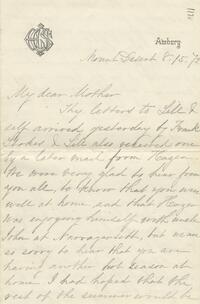 Mount Desert 8/5/7
My dear Mother
Thy letters to Lill &
self arrived yesterday by Frank
Stokes & Lill also received one
by a later mail from Hagen
We were very glad to hear from
you all, to know that you were
well at home and that Hagen
was enjoying himself with uncle
John at Narragansett, but we
are so sorry to hear that you are
having another hot season at
home I had hoped that the
rest of the summer would be